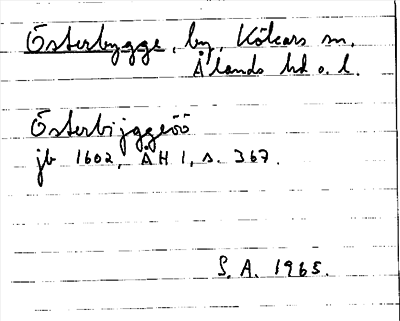 Österbygge, by, Kökars sn,
Ålands hd o. l.
Österbijggeöö
jb 1602, ÅH 1, s. 367.
S. A. 1965.